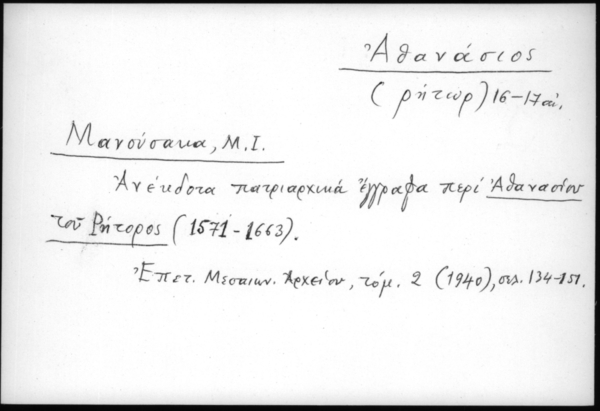 Ἀθανάσιος
(ρήτωρ) 16-17 αἰ.
Μανούσακα, Μ.Ι.
Ἀνέκδοτα πατριαρχικά ἔγγραφα περί Ἀθανασίου
τοῦ Ρήτορος (1571-1663).
Ἐπετ. Μεσαιων. Ἀρχείου, τόμ. 2 (1940), σελ. 134-151.